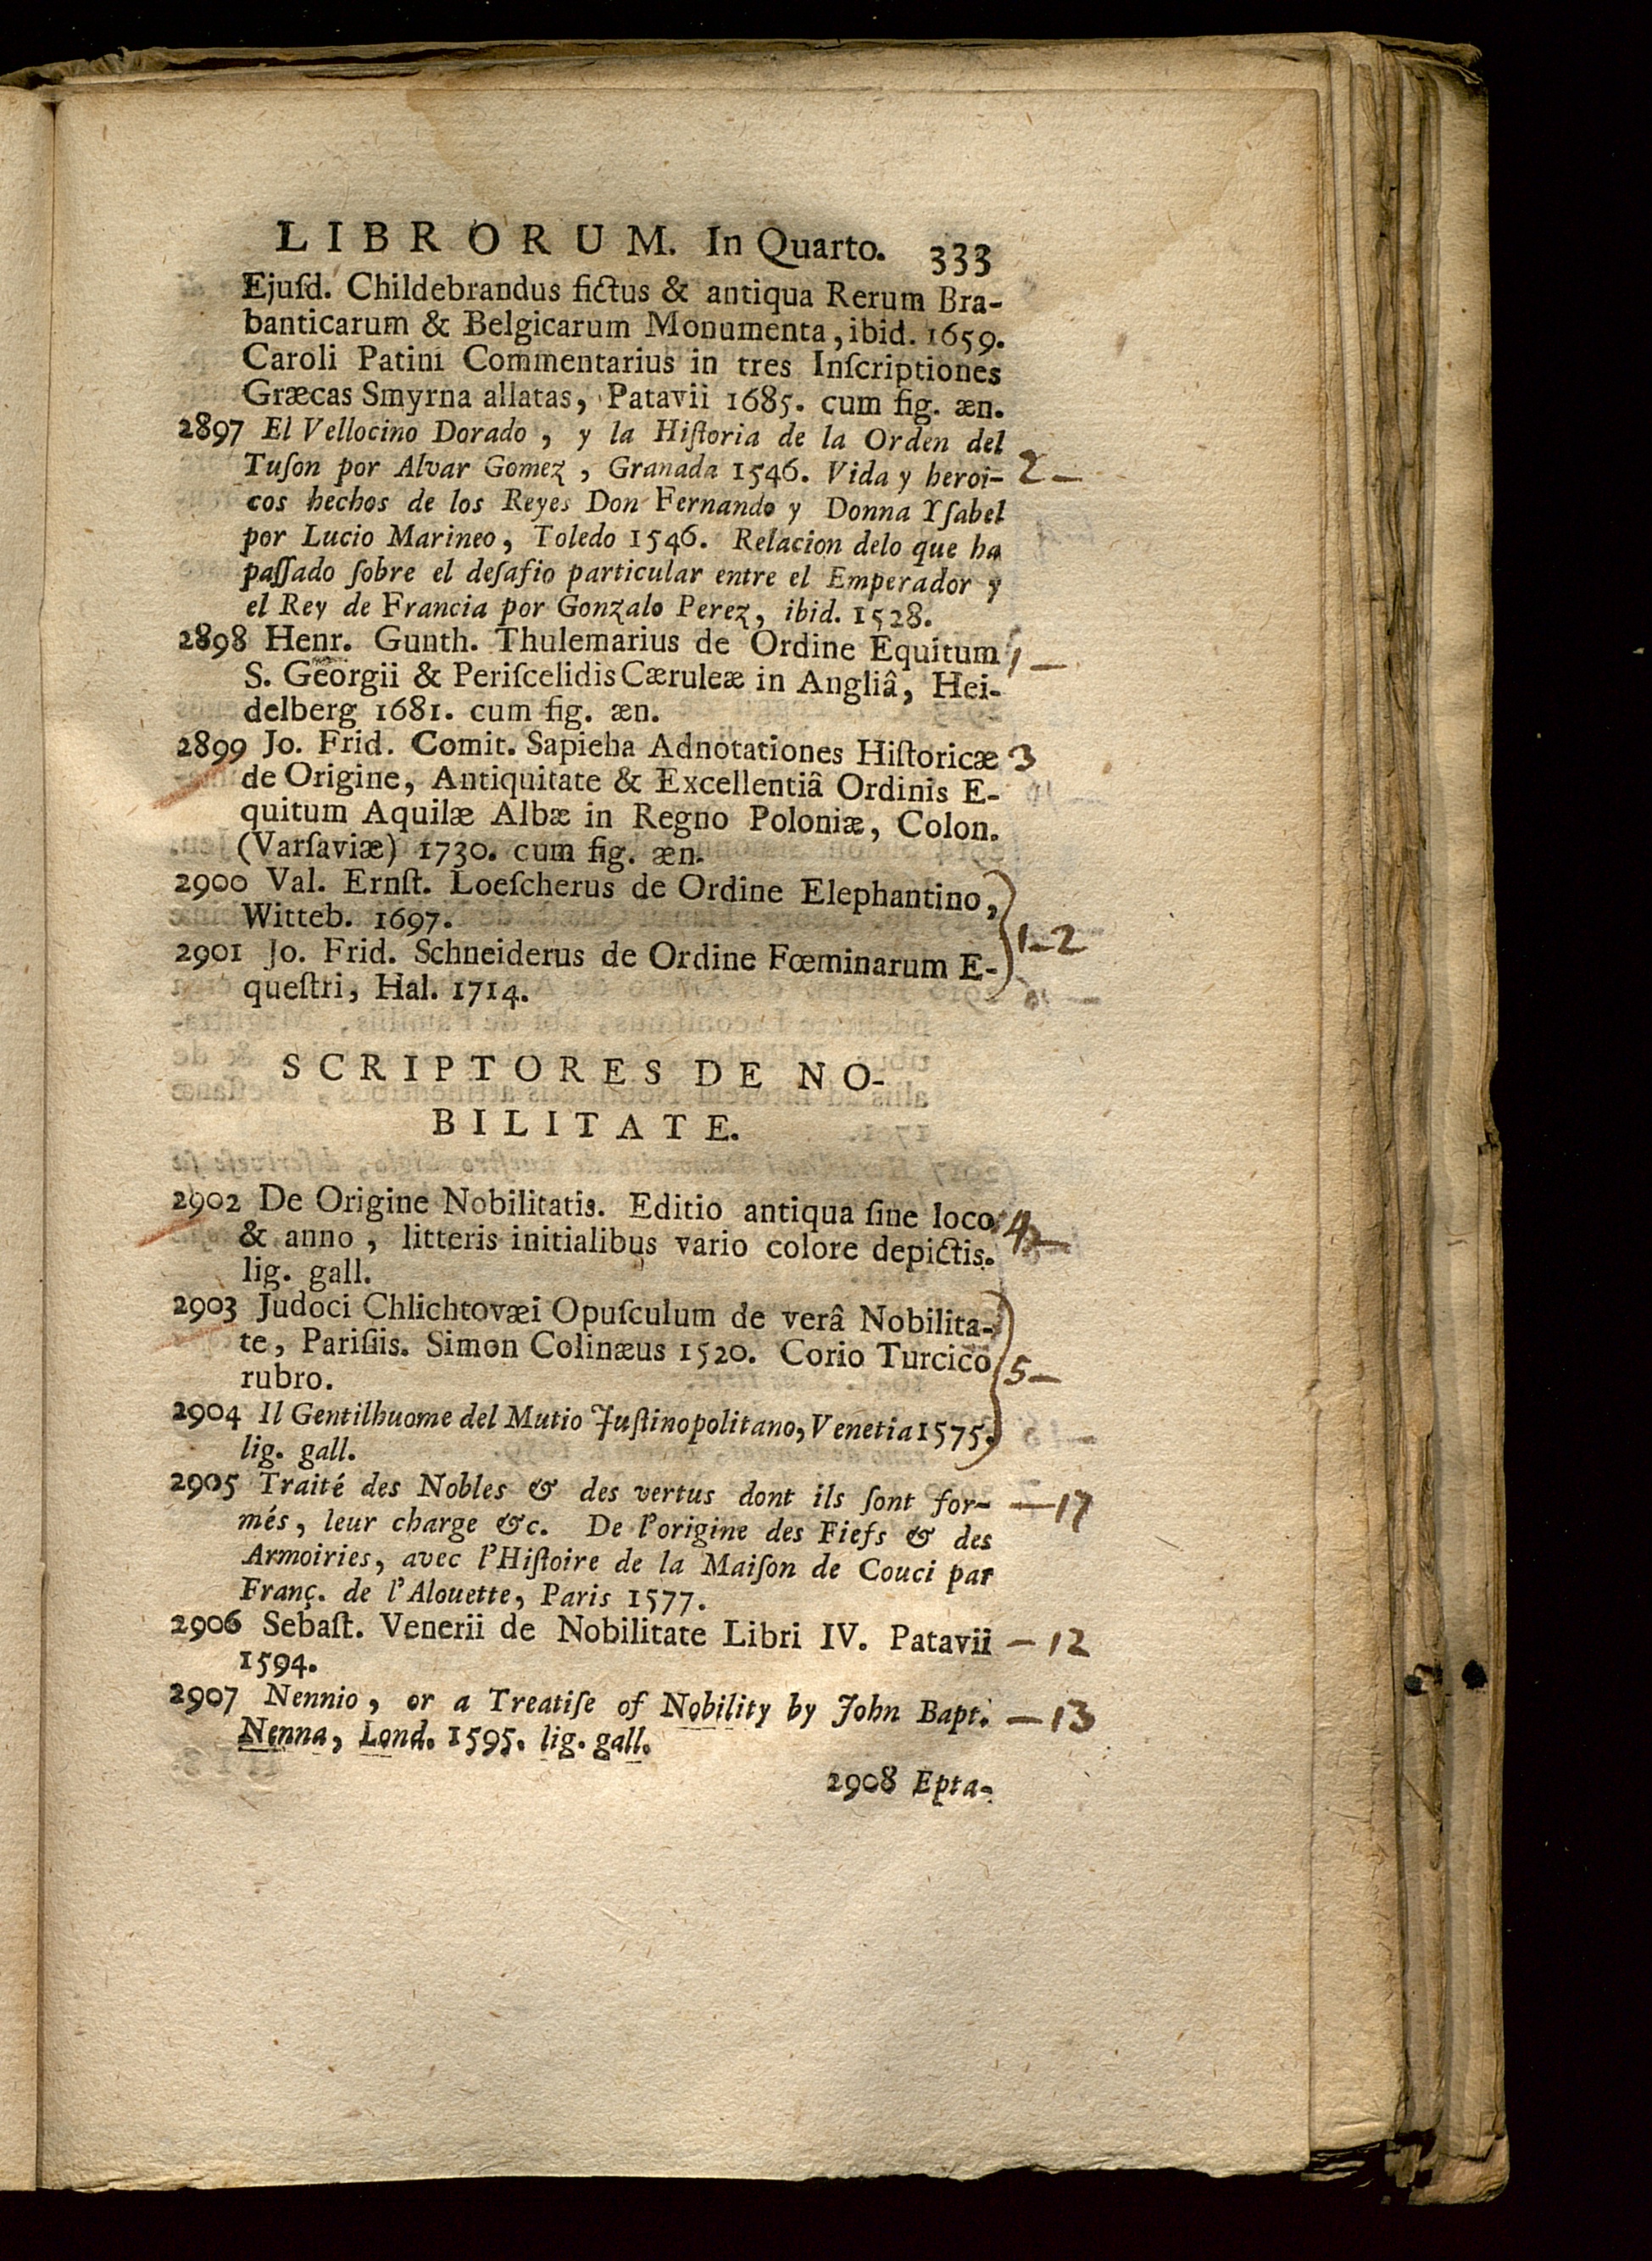 LIBRORUM. In Quarto. 333
Ejuſd. Childebrandus fictus & antiqua Rerum Bra-
banticarum & Belgicarum Monumenta, ibid. 1659.
Caroli Patini Commentarius in tres Inſcriptiones
Græcas Smyrna allatas, Patavii 1685. cum fig. æn.
2897 El Vellocino Dorado, y la Hiſtoria de la Orden del
Tuſon por Alvar Gomez, Granada 1546. Vida y heroi- 2—
cos hechos de los Reyes Don Fernando y Donna Yſabel
por Lucio Marineo, Toledo 1546. Relacion delo que ha
paſſado ſobre el deſafio particular entre el Emperador y
el Rey de Francia por Gonzalo Perez, ibid. 1528.
2898 Henr. Gunth. Thulemarius de Ordine Equitum 1—
S. Georgii & Periſcelidis Cæruleæ in Angliâ, Hei-
delberg 1681. cum fig. æn.
2899 Jo. Frid. Comit. Sapieha Adnotationes Hiſtoricæ 3
de Origine, Antiquitate & Excellentiâ Ordinis E-
quitum Aquilæ Albæ in Regno Poloniæ, Colon.
(Varſaviæ) 1730. cum fig. æn.
2900 Val. Ernſt. Loeſcherus de Ordine Elephantino,
Witteb. 1697. 1-2
2901 Jo. Frid. Schneiderus de Ordine Fœminarum E-
queſtri, Hal. 1714.
SCRIPTORES DE NO-
BILITATE.
2902 De Origine Nobilitatis. Editio antiqua ſine loco 4—
& anno, litteris initialibus vario colore depictis.
lig. gall.
2903 Judoci Chlichtovæi Opuſculum de verâ Nobilita-
te, Pariſiis. Simon Colinæus 1520. Corio Turcico 5—
rubro.
2904 Il Gentilhuome del Mutio Juſtinopolitano, Venetia 1575.
lig. gall.
2905 Traité des Nobles & des vertus dont ils ſont for- —17
més, leur charge &c. De l'origine des Fiefs & des
Armoiries, avec l'Hiſtoire de la Maiſon de Couci par
Franç. de l'Alouette, Paris 1577.
2906 Sebaſt. Venerii de Nobilitate Libri IV. Patavii —12
1594.
2907 Nennio, or a Treatiſe of Nobility by John Bapt. —13
Nenna, Lond. 1595. lig. gall.
2908 Epta-